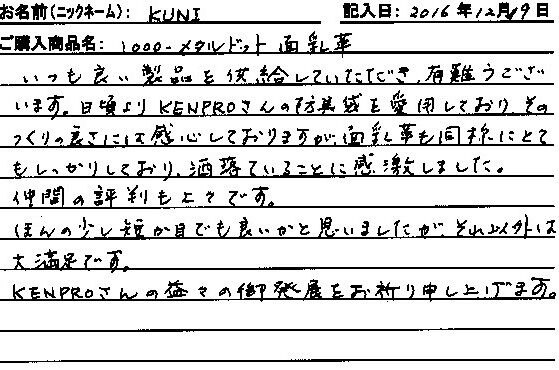 お名前(ニックネーム): KUNI 記入日: 2016年12月19日
ご購入商品名: 1000-メタルドット 面乳革
いつも良い製品を供給していただき、有難うござ
います。日頃よりKENPROさんの防具袋を愛用しており、その
つくりの良さには感心しておりますが、面乳革も同様にとて
もしっかりしており、洒落ていることに感激しました。
仲間の評判も上々です。
ほんの少し短か目でも良いかと思いましたが、それ以外は
大満足です。
KENPROさんの益々の御発展をお祈り申し上げます。